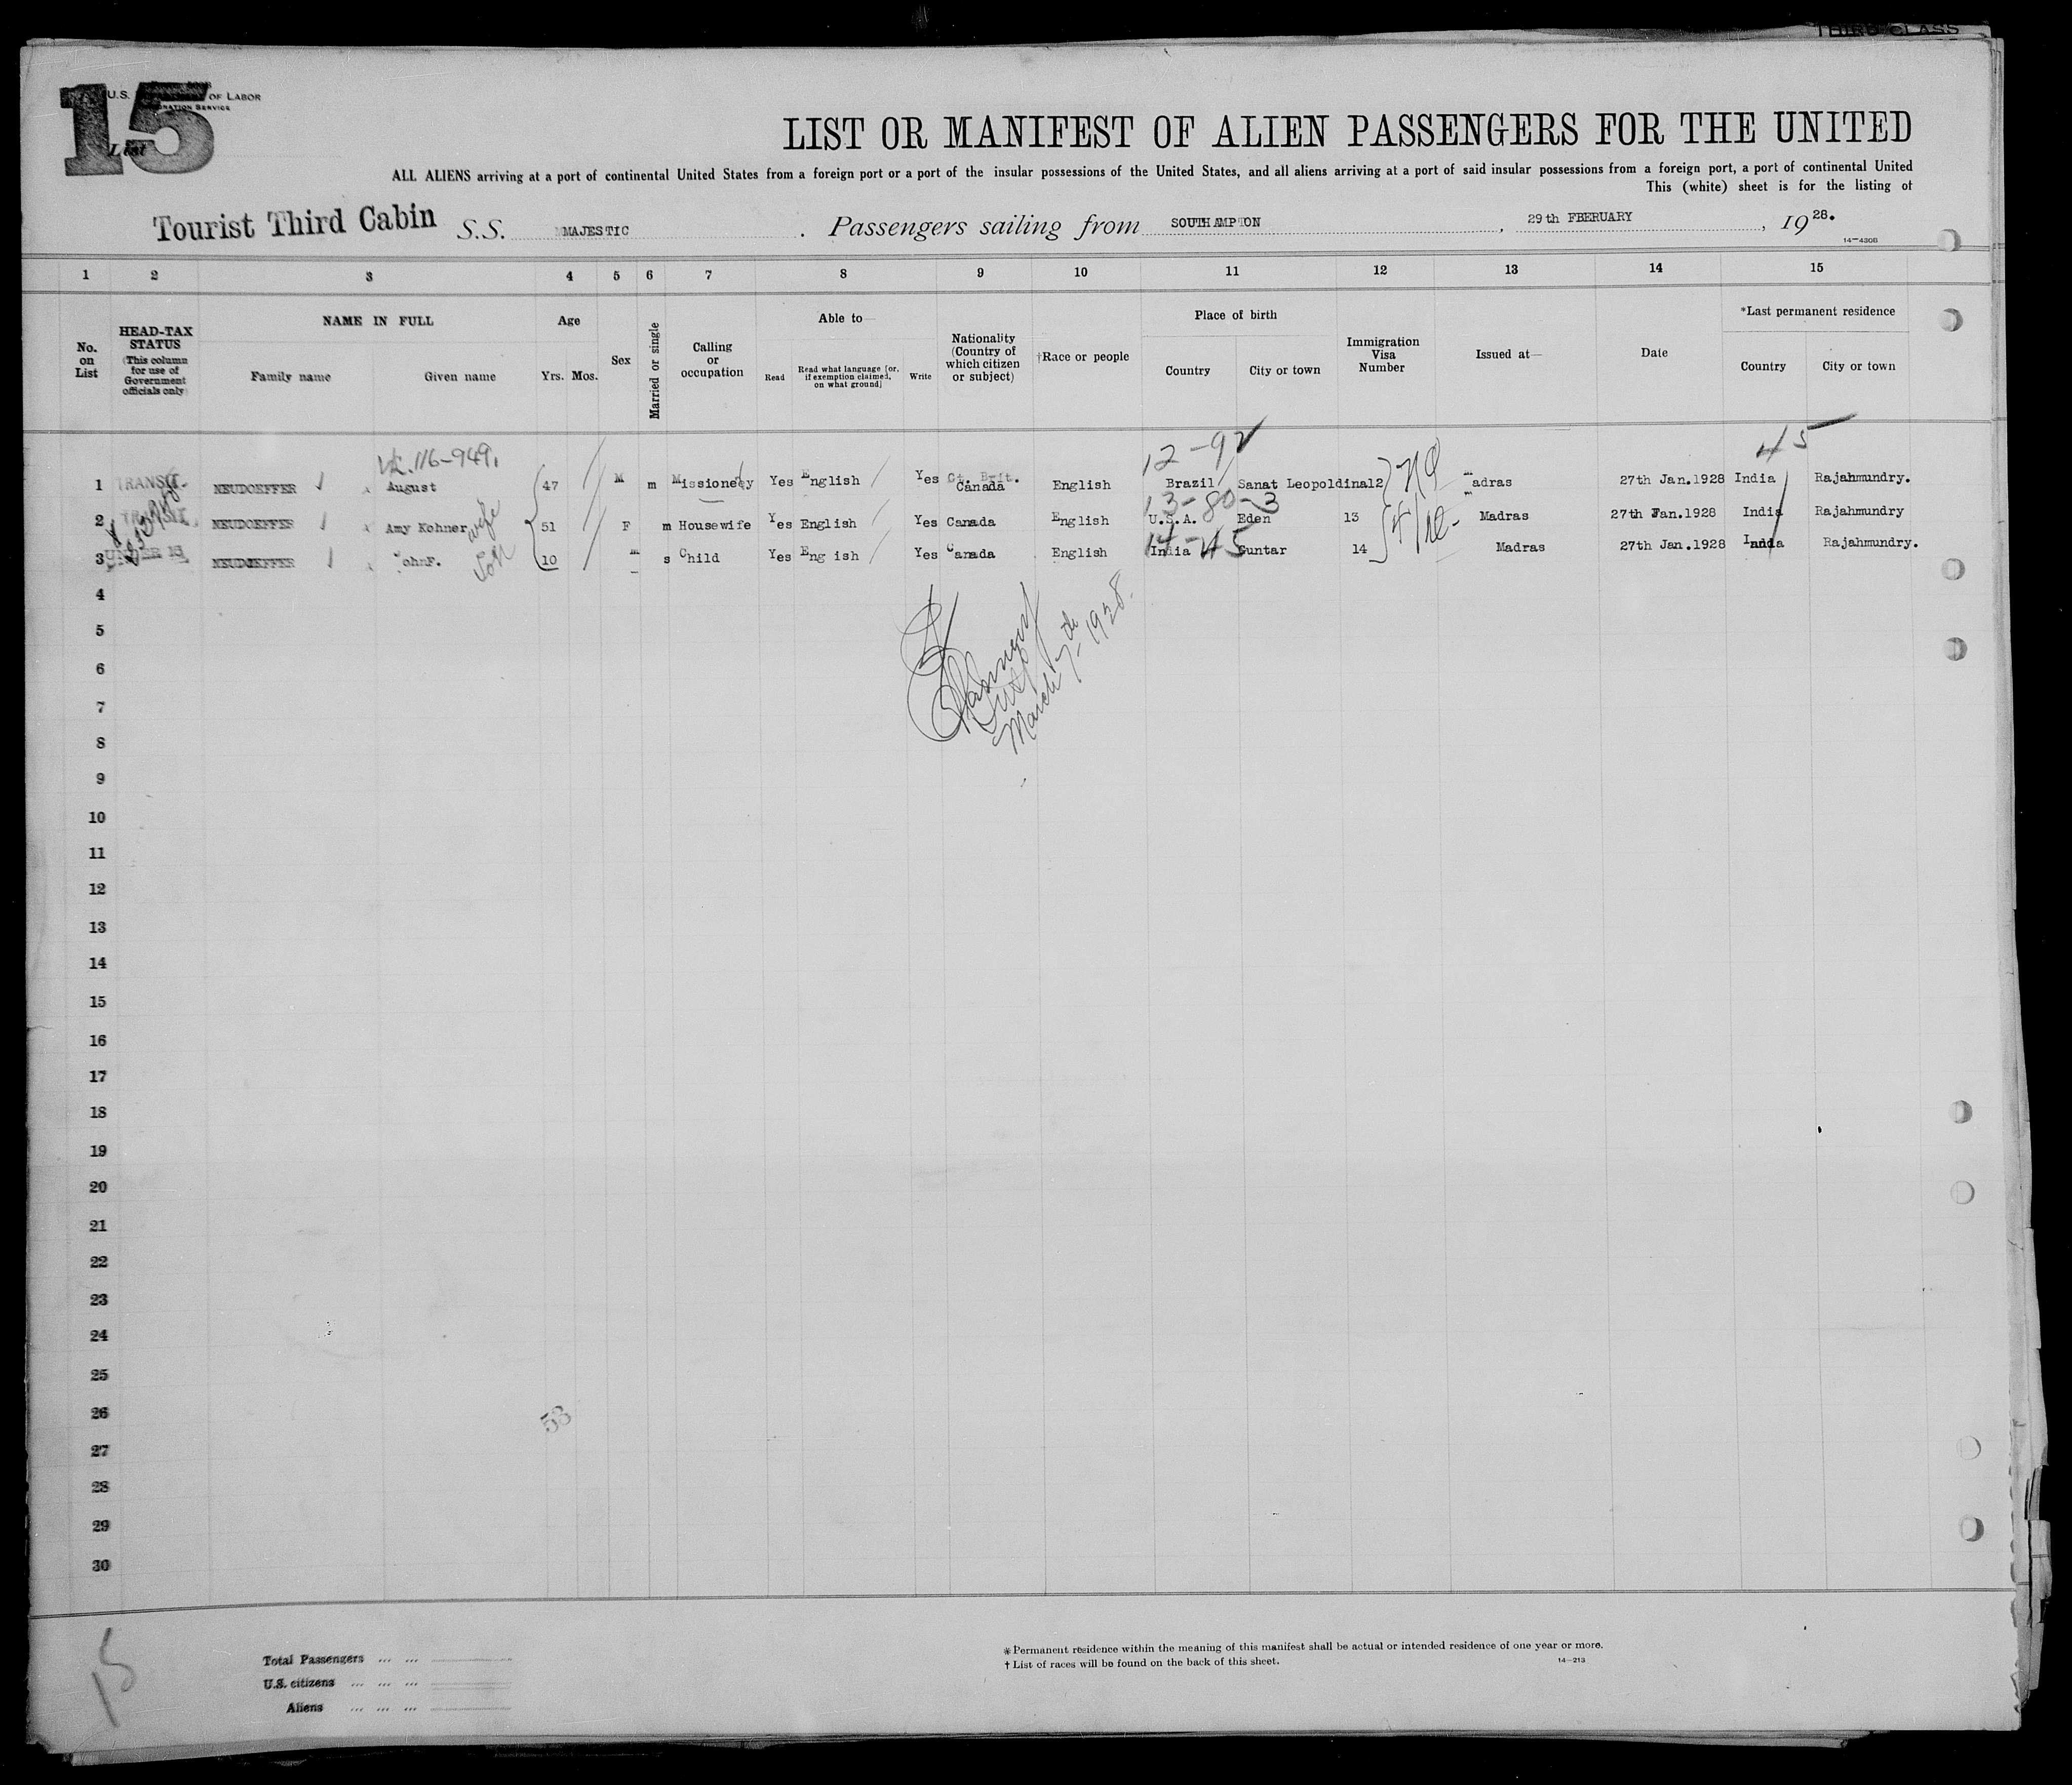 THIRD CLASS
15
U.S. OF LABOR
List
LIST OR MANIFEST OF ALIEN PASSENGERS FOR THE UNITED
ALL ALIENS arriving at a port of continental United States from a foreign port or a port of the insular possessions of the United States, and all aliens arriving at a port of said insular possessions from a foreign port, a port of continental United
This (white) sheet is for the listing of
Tourist Third Cabin S.S. MAJESTIC . Passengers sailing from SOUTHAMPTON , 29th FBERUARY , 19 28.
14-430B
1 2 3 4 5 6 7 8 9 10 11 12 13 14 15
No. on List
HEAD-TAX STATUS (This column for use of Government officials only)
NAME IN FULL
Family name Given name
Age
Yrs. Mos.
Sex
Married or single
Calling or occupation
Able to—
Read Read what language [or, if exemption claimed, on what ground] Write
Nationality (Country of which citizen or subject)
†Race or people
Place of birth
Country City or town
Immigration Visa Number
Issued at—
Date
*Last permanent residence
Country City or town
116-949. 12-92 45
1 TRANSIT. NEUDOEFFER August 47 M m Missionery Yes English Yes Gt. Brit. Canada English Brazil Sanat Leopoldina 12 madras 27th Jan.1928 India Rajahmundry.
13-80-3
2 TRANSIT. NEUDOEFFER Amy Kohner wife 51 F m Housewife Yes English Yes Canada English U.S.A. Eden 13 Madras 27th Jan.1928 India Rajahmundry
14-45
3 UNDER 16 NEUDOEFFER JohnF. Son 10 m s Child Yes Eng ish Yes Canada English India Guntar 14 Madras 27th Jan.1928 India Rajahmundry.
4
5
6
March 7th 1928.
7
8
9
10
11
12
13
14
15
16
17
18
19
20
21
22
23
24
25
26
53
27
28
29
30
15
Total Passengers ... ...
U.S. citizens ... ... ...
Aliens ... ... ...
* Permanent residence within the meaning of this manifest shall be actual or intended residence of one year or more.
† List of races will be found on the back of this sheet.
14-213